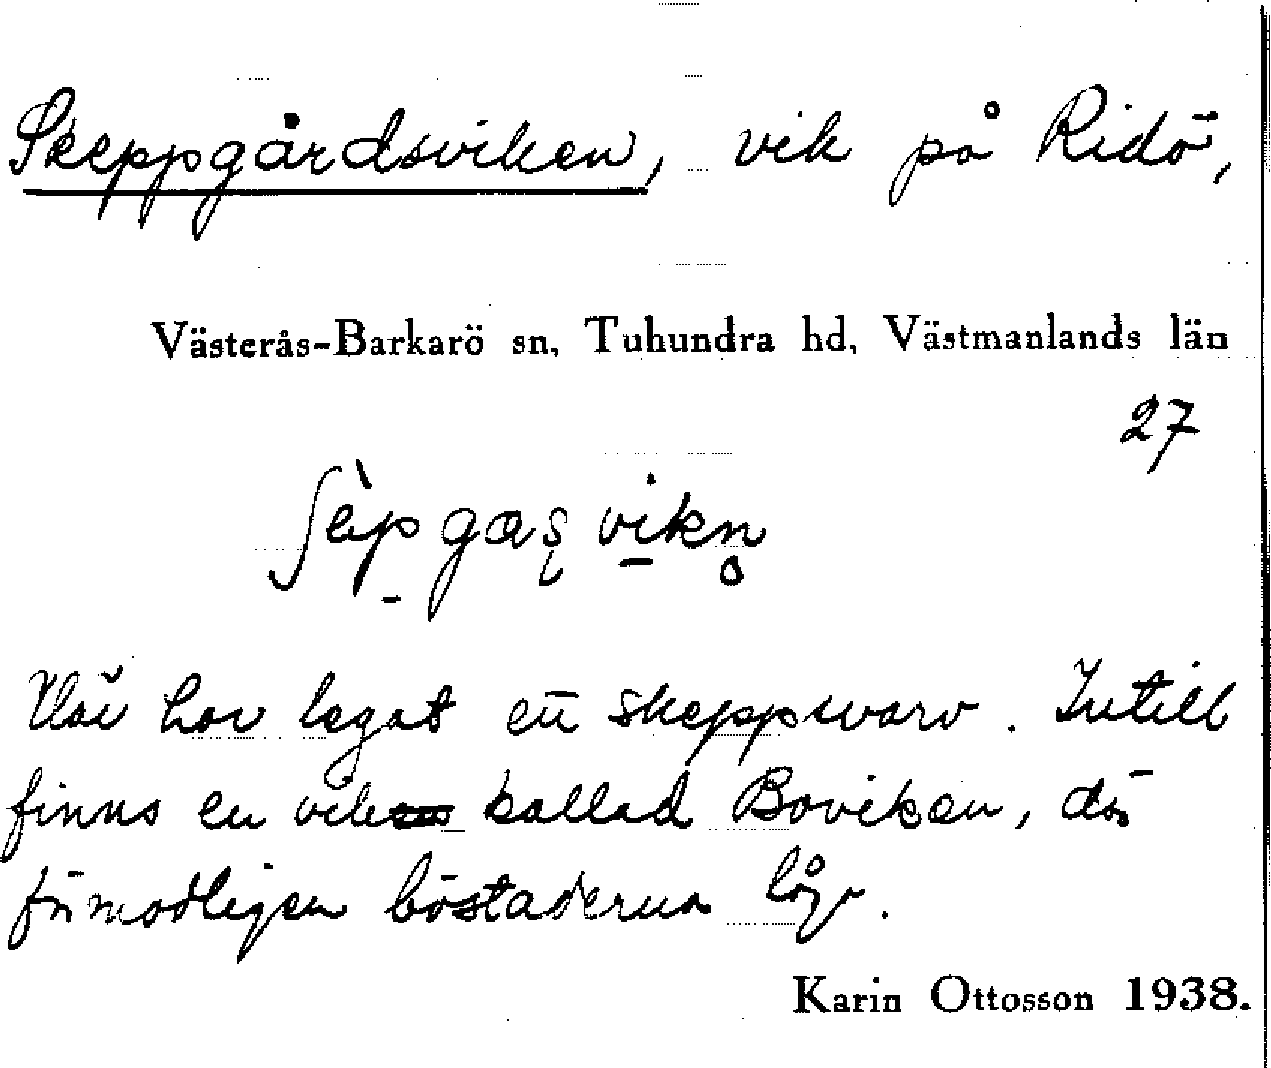 Skeppgårdsviken, vik på Ridö,
Västerås-Barkarö sn, Tuhundra hd, Västmanlands län
27
ʃèp̠gas̨vi̠kn̥
Här har legat ett skeppsvarv. Intill
finns en vik kallad Boviken, där
förmodligen bostäderna låg.
Karin Ottosson 1938.